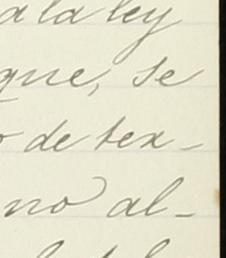 a la ley
que, se
o de tex-
no al-